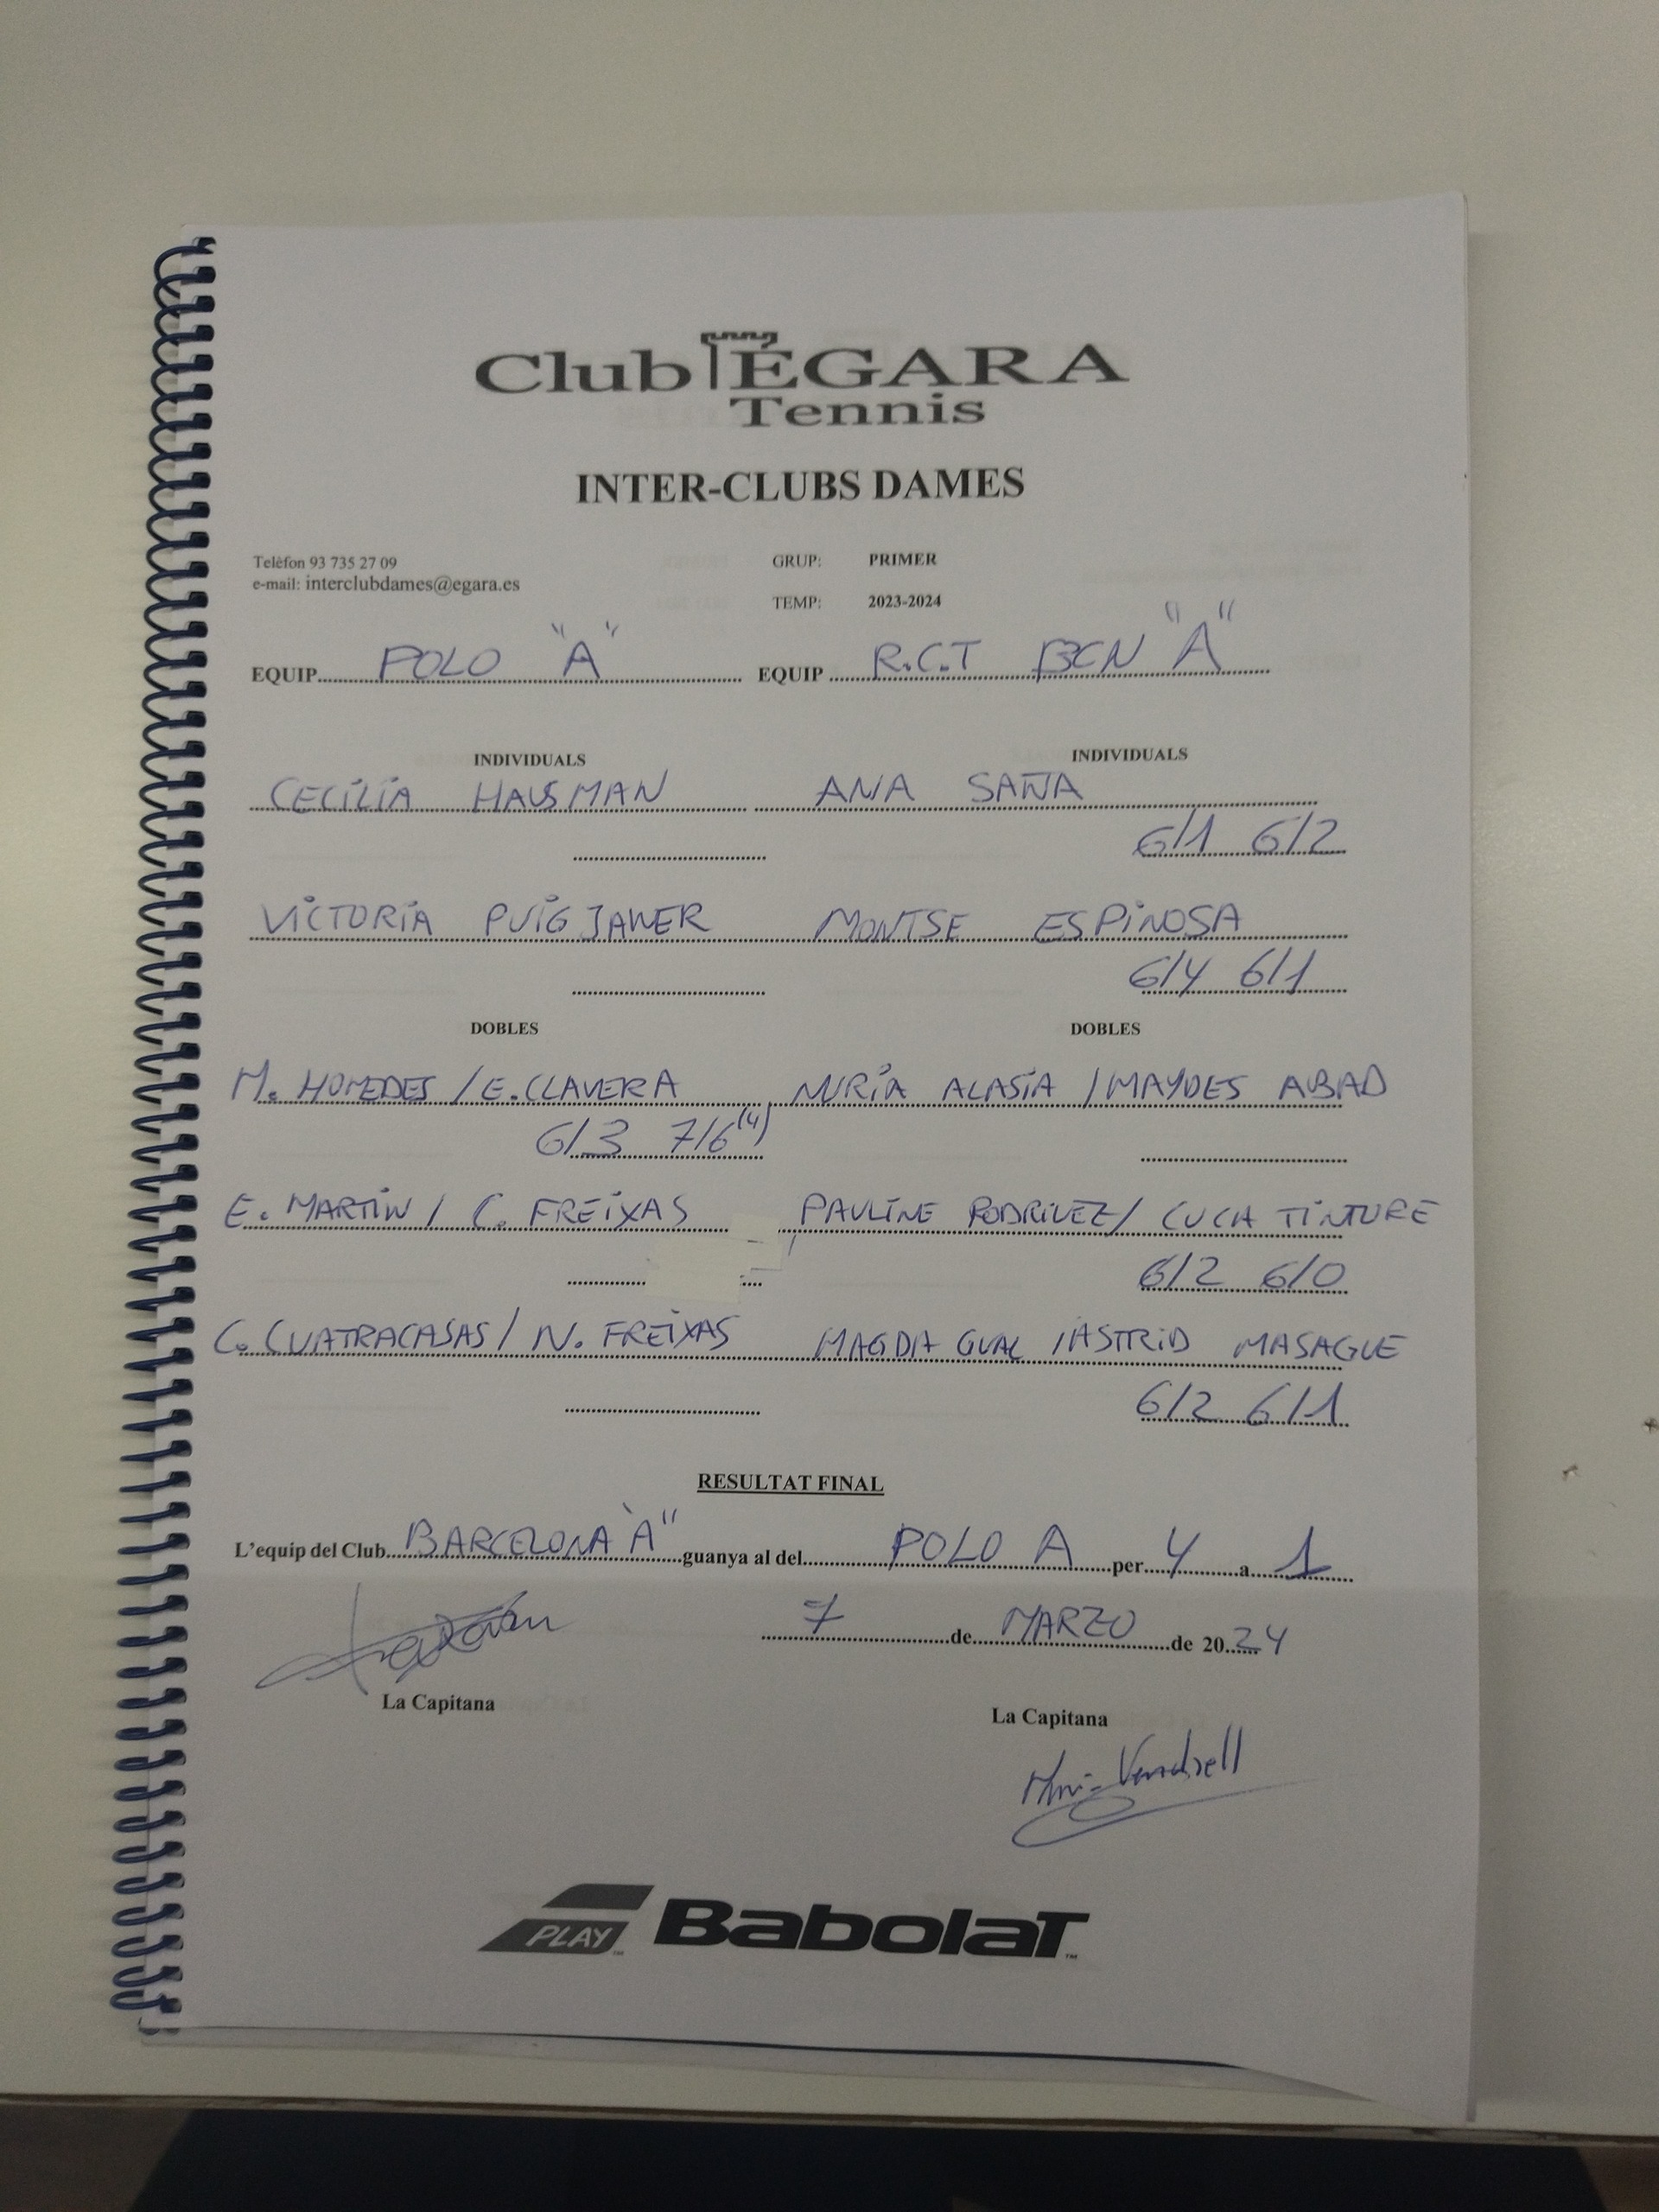 Club ÈGARA
Tennis
INTER-CLUBS DAMES
Telèfon 93 735 27 09 GRUP: PRIMER
e-mail: interclubdames@egara.es
TEMP: 2023-2024
EQUIP POLO "A" EQUIP R.C.T BCN "A"
INDIVIDUALS INDIVIDUALS
CECILIA HAUSMAN ANA SAÑA
6/1 6/2
VICTORIA PUIGJANER MONTSE ESPINOSA
6/4 6/1
DOBLES DOBLES
M. HOMEDES / E. CLAVERA NURIA ALASIA / MAYDES ABAD
6/3 7/6(4)
E. MARTIN / C. FREIXAS PAULINE RODRIUEZ / CUCA TINTURE
6/2 6/0
C. CUATRACASAS / N. FREIXAS MAGDA GUAL / ASTRID MASAGUE
6/2 6/1
RESULTAT FINAL
L'equip del Club BARCELONA "A" guanya al del POLO A per 4 a 1
7 de MARZO de 2024
La Capitana La Capitana
Vendrell
PLAY™ BabolaT™